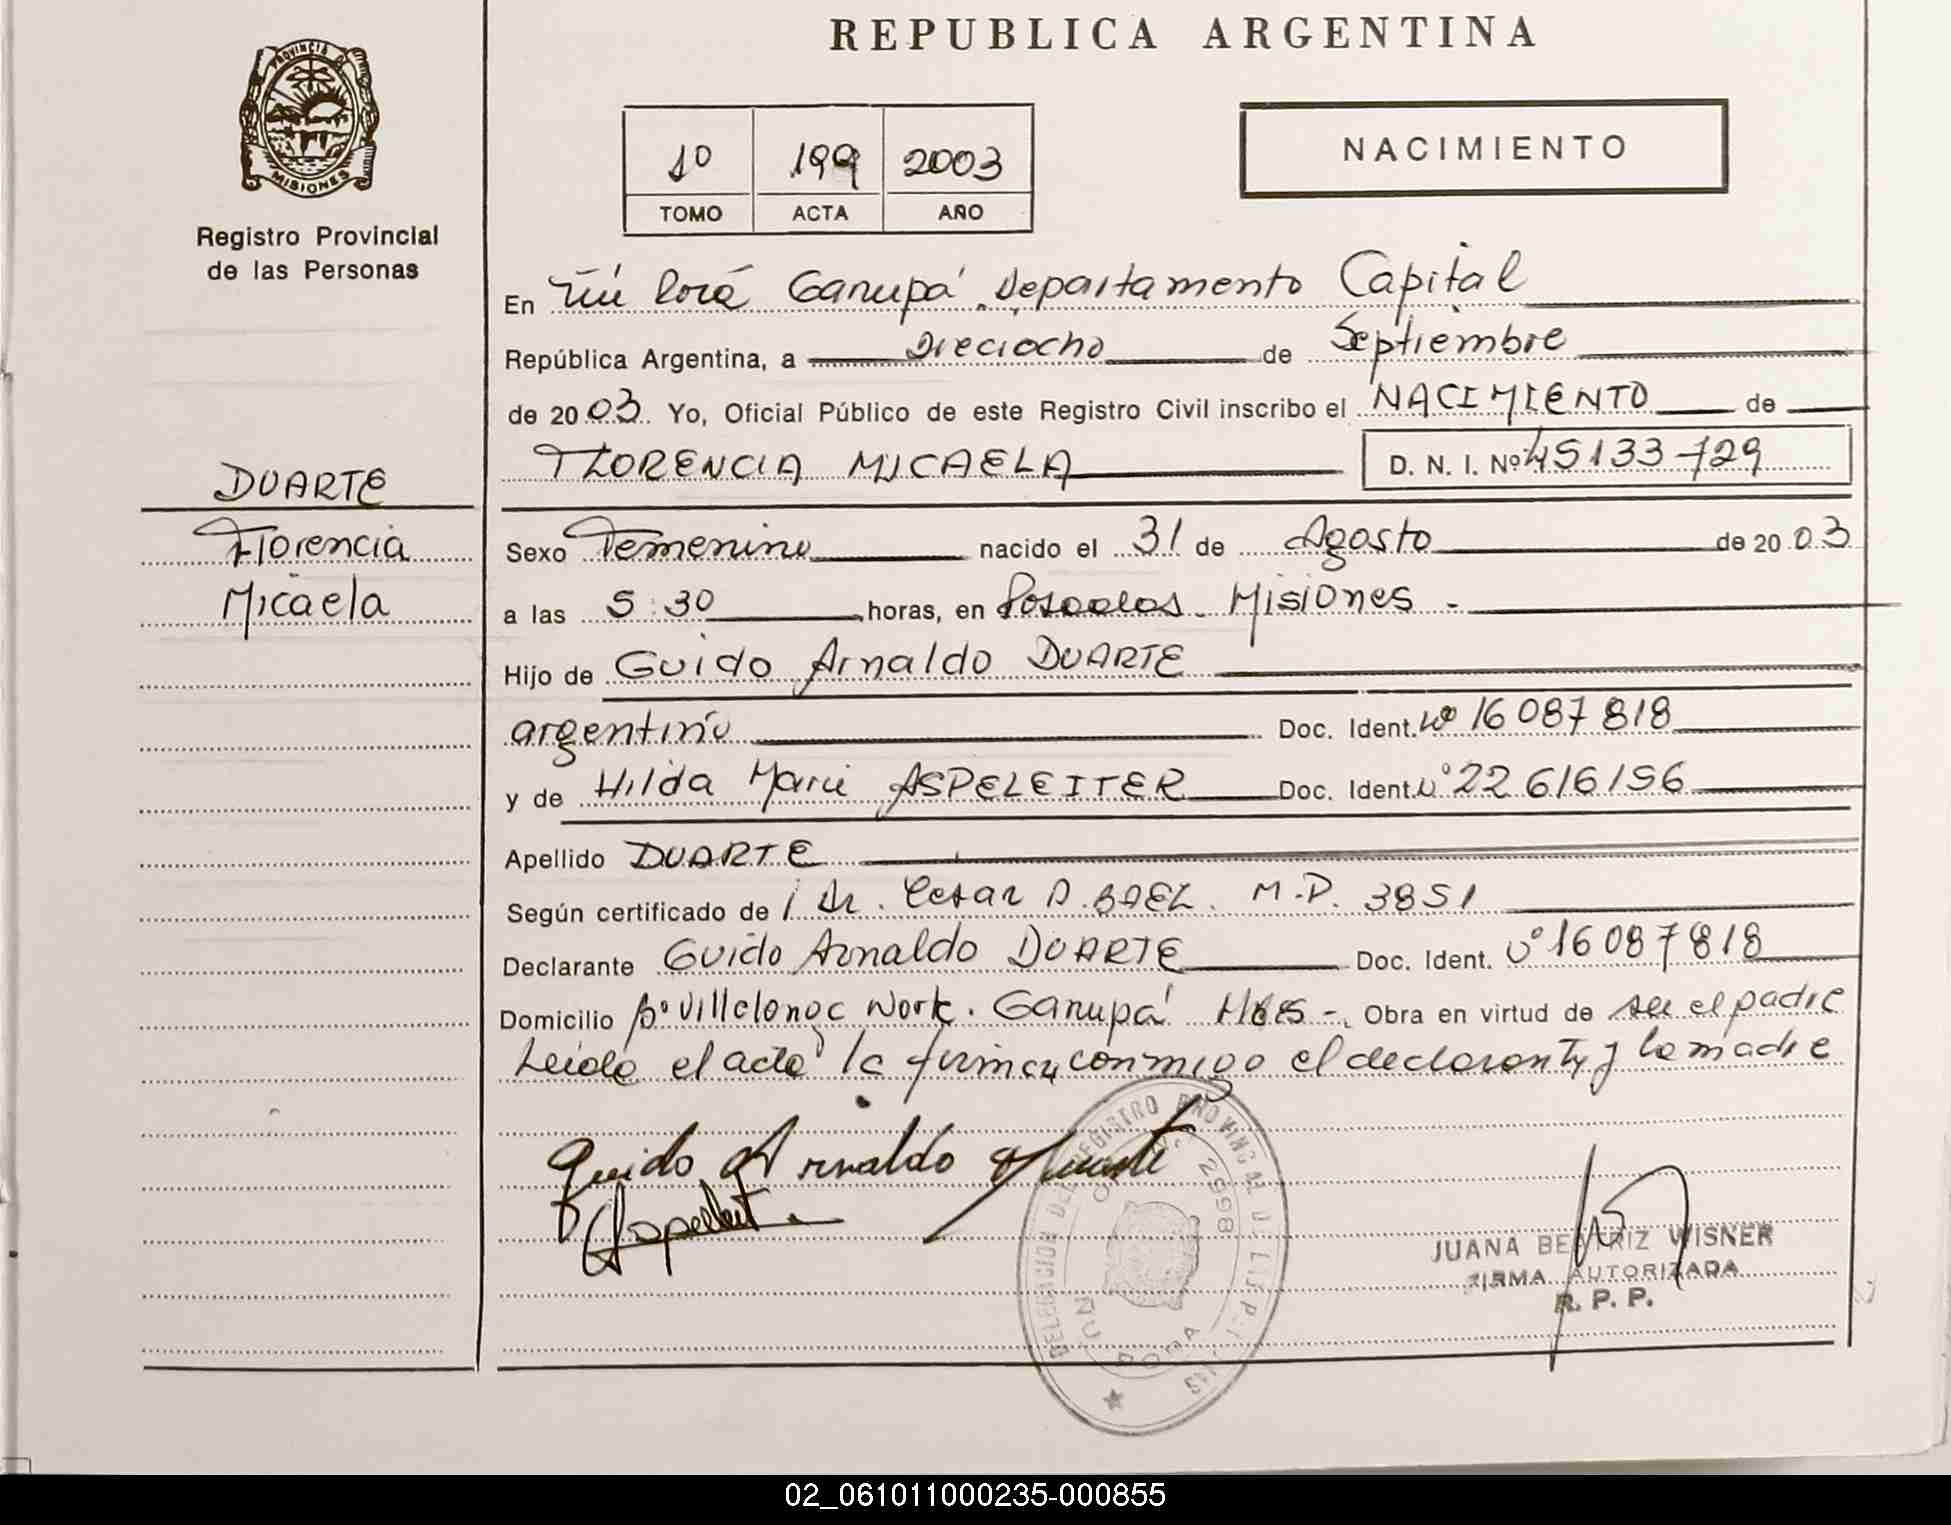 REPUBLICA ARGENTINA
PROVINCIA DE
MISIONES
Registro Provincial
de las Personas
1º 199 2003
TOMO ACTA AÑO
NACIMIENTO
En Ñú Porá Garupá Departamento Capital
República Argentina, a Dieciocho de Septiembre
de 2003. Yo, Oficial Público de este Registro Civil inscribo el NACIMIENTO de
FLORENCIA MICAELA D. N. I. Nº 45133729
DUARTE
Florencia
Micaela
Sexo Femenino nacido el 31 de Agosto de 2003
a las 5:30 horas, en Posadas - Misiones -
Hijo de Guido Arnaldo DUARTE
argentino Doc. Ident. Nº 16 087 818
y de Hilda Marie ASPELEITER Doc. Ident. Nº 22 616 156
Apellido DUARTE
Según certificado de Dr. Cesar M.P. 3851
Declarante Guido Arnaldo DUARTE Doc. Ident. Nº 16 087 818
Domicilio Bº Villalonga Garupá Mnes -. Obra en virtud de ser el padre
Leída el acta la firman conmigo el declarante y la madre
Guido Arnaldo Duarte
DELEGACION DEL REGISTRO PROVINCIAL DE LAS P.
2998
ÑU PORA
JUANA BEATRIZ WISNER
FIRMA AUTORIZADA
R. P. P.
02_061011000235-000855